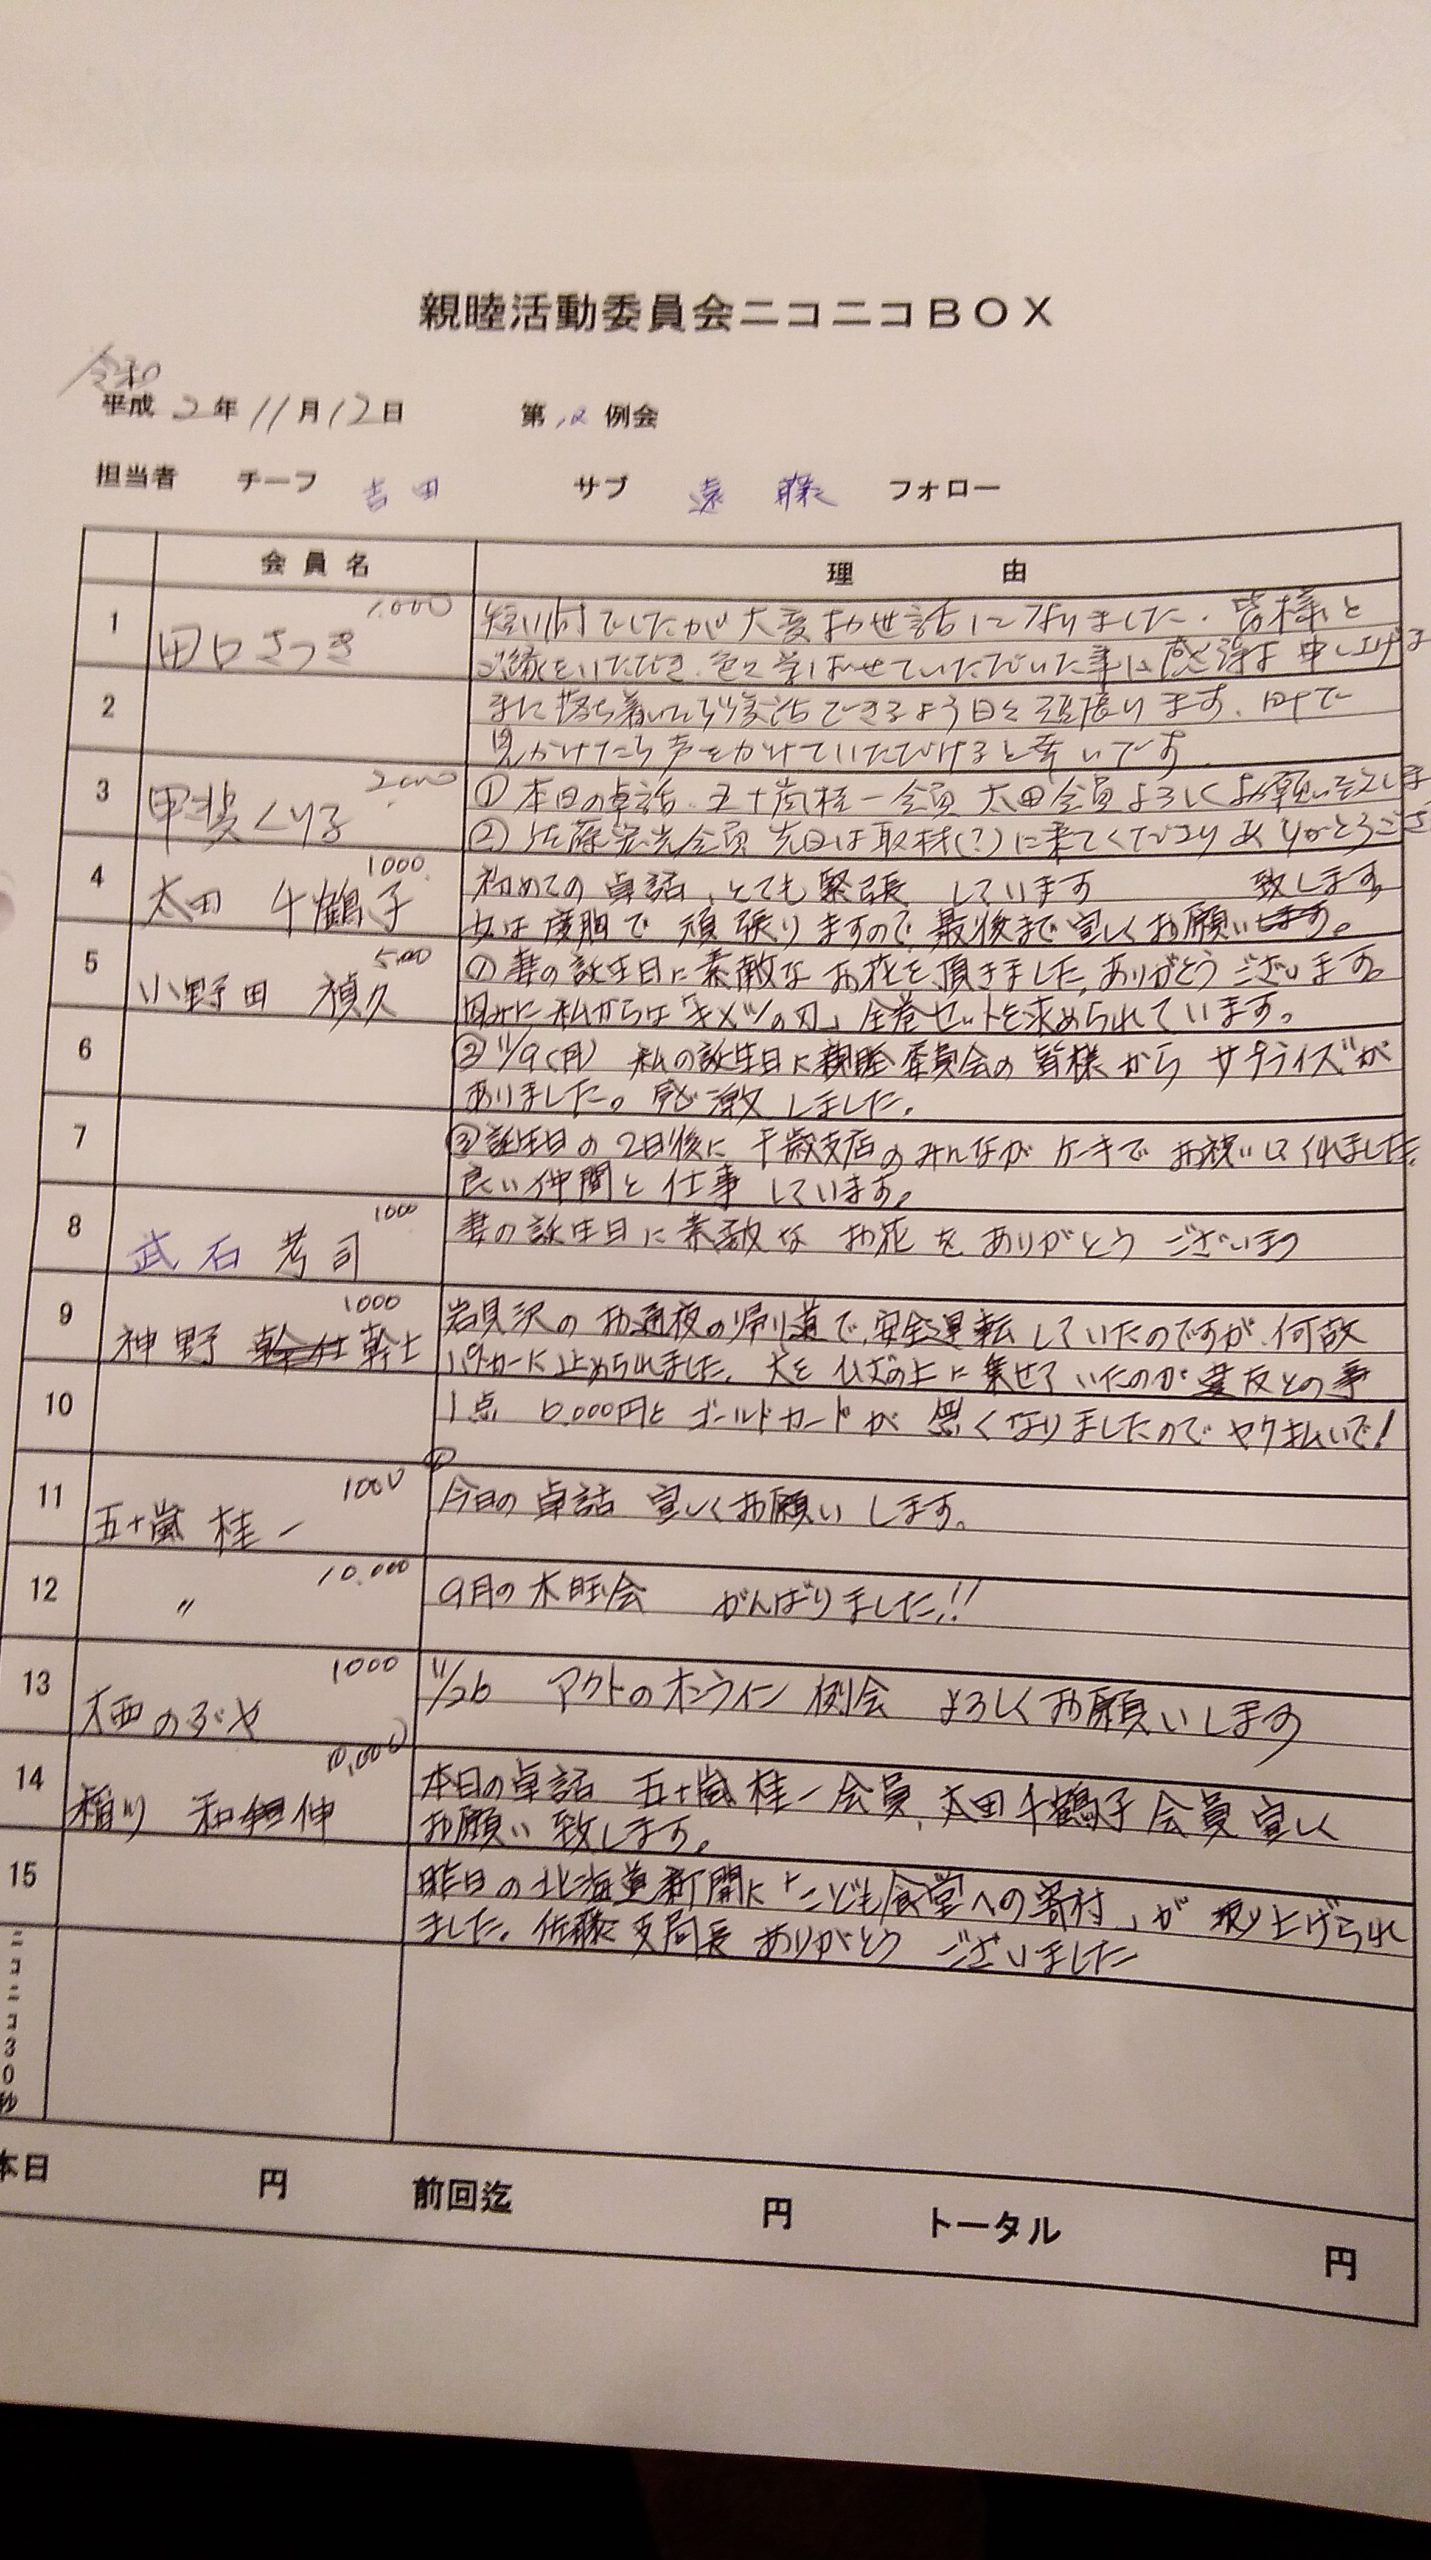 親睦活動委員会ニコニコBOX
令和
平成 2年 11月12日 第12例会
担当者 チーフ 吉田 サブ 遠藤 フォロー
会員名 理由
1 田口さつき 1,000 短い間でしたが大変お世話になりました。皆様と
ご縁をいただき、色々学ばせていただいた事に感謝を申し上げ
2 また落ち着いて復活できるよう日々頑張ります。町で
見かけたら声をかけていただけると幸いです。
3 甲斐くり子 2,000 ①本日の卓話、五十嵐桂一会員 太田会員よろしくお願いします
②佐藤宏光会員 先日は取材(?)に来てくださりありがとうござ
4 太田 千鶴子 1000. 初めての卓話、とても緊張しています 致します
女は度胸で頑張りますので、最後まで宜しくお願いします。
5 小野田 禎久 5,000 ①妻の誕生日に素敵なお花を頂きました。ありがとうございます。
因みに私からは「キメツの刃」全巻セットを求められています。
6 ②11/9(月) 私の誕生日に親睦委員会の皆様からサプライズが
ありました。感激しました。
7 ③誕生日の2日後に千歳支店のみんながケーキでお祝いしてくれました。
良い仲間と仕事しています。
8 武石 孝司 1000 妻の誕生日に素敵なお花をありがとうございます
9 神野 幹士 1000 岩見沢のお通夜の帰り道で、安全運転していたのですが、何故
パトカーに止められました。犬をひざの上に乗せていたのが違反との事
10 1点 6,000円とゴールドカードが無くなりましたのでヤク払いで!
11 五十嵐 桂一 1000 ① 今日の卓話 宜しくお願いします。
12 〃 10,000 9月の木旺会 がんばりました!!
13 大西のぶや 1000 11/26 アクトのオンライン例会 よろしくお願いします
14 稲川 和伸 10,000 本日の卓話 五十嵐桂一会員、太田千鶴子会員宜しく
お願い致します。
15 昨日の北海道新聞に「こども食堂への寄付」が取り上げられ
ました。佐藤支局長ありがとうございました
ニコニコ30秒
本日 円 前回迄 円 トータル 円